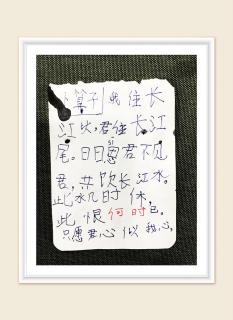 卜算子 我住长
江头,君住长江
尾。日日思君不见
君,共饮长江水。
此水几时休,
此恨何时已。
只愿君心似我心,